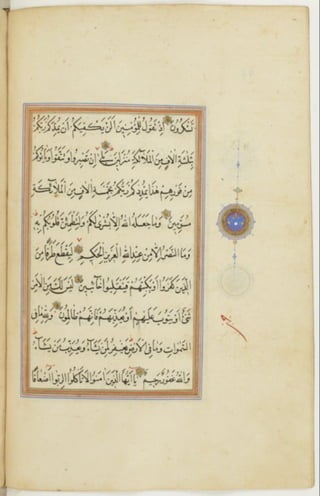 تشكرون اذ تقول للمؤمنين الن يكفيكم ان يمدكم ربكم
بثلثة الاف من الملائكة منزلين بلى ان تصبروا وتتقوا وياتوكم
من فورهم هذا يمددكم ربكم بخمسة الاف من الملائكة
مسومين وما جعله الله الا بشرى لكم ولتطمئن قلوبكم به
وما النصر الا من عند الله العزيز الحكيم ليقطع طرفا من
الذين كفروا او يكبتهم فينقلبوا خائبين ليس لك من الامر
شئ او يتوب عليهم او يعذبهم فانهم ظالمون ولله ما فى
السموات وما فى الارض يغفر لمن يشاء ويعذب من يشاء
والله غفور رحيم يا ايها الذين امنوا لا تاكلوا الربوا اضعافا